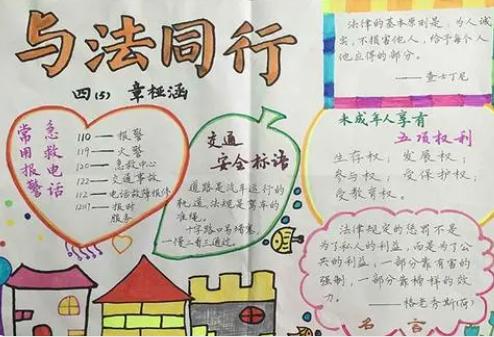 与法同行
四(5) 章桠涵
急救电话
常用报警
110——报警
119——火警
120——急救中心
122——交通事故
112——电话故障报修
12117——报时
服务
交通
安全标语
道路是汽车运行的
轨道，法规是驾车的
准绳。
十字路口易堵塞，
一慢二看三通过。
法律的基本原则是，为人诚
实，不损害他人，给予每个人
他应得的部分。
——查士丁尼
未成年人享有
五项权利
生存权；发展权；
参与权；受保护权；
受教育权。
法律规定的惩罚不是
为了私人的利益，而是为了公
共的利益；一部分靠有害的
强制，一部分靠榜样的效
力。
——格老秀斯(荷)
名言